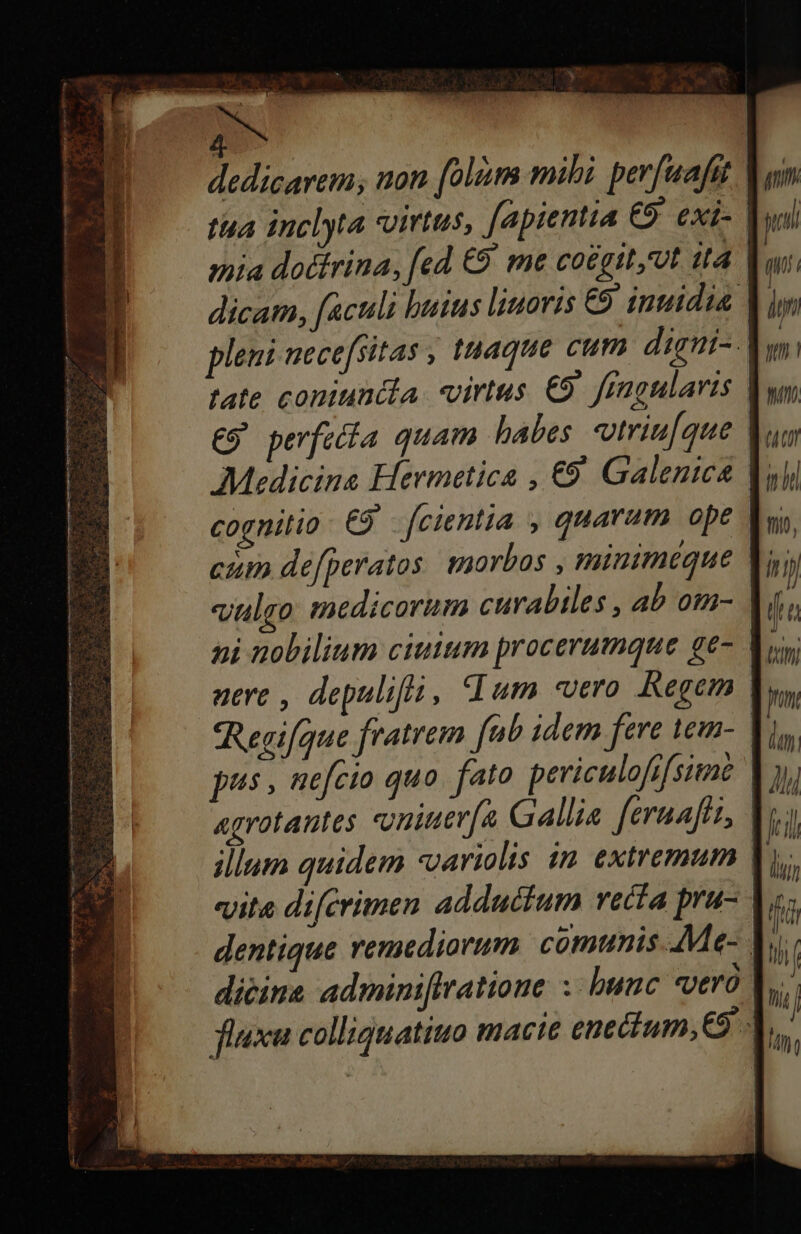 4
dedicarem, non ſolùm mihi perſuaſit
tua inclyta virtus, ſapientia & exi-
mia doctrina, ſed & me coëgit, vt ita
dicam, ſæculi huius liuoris & inuidiæ
pleni neceſsitas, tuaque cum digni-
tate coniuncta virtus & ſingularis
& perfecta quam habes vtriuſque
Medicinæ Hermeticæ, & Galenicæ
cognitio & ſcientia, quarum ope
cùm deſperatos morbos, miniméque
vulgo medicorum curabiles, ab om-
ni nobilium ciuium procerumque ge-
nere, depuliſti, Tum vero Regem
Regiſque fratrem ſub idem fere tem-
pus, neſcio quo fato periculoſiſsimè
ægrotantes vniuerſæ Galliæ ſeruaſti,
illum quidem variolis in extremum
vitæ diſcrimen adductum recta pru-
dentique remediorum cōmunis Me-
dicinæ adminiſtratione : hunc verò
fluxu colliquatiuo macie enectum, &